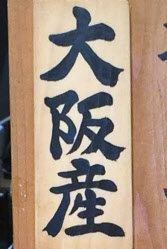 大阪産